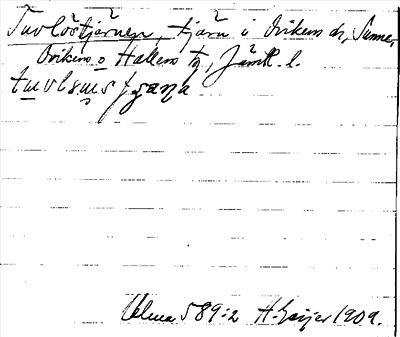 Tuvlöstjärnen, tjärn i Ovikens sn, Sunne,
Ovikens o Hallens tg, Jämtl. l.
Ulma 589:2 H. Geijer 1909.